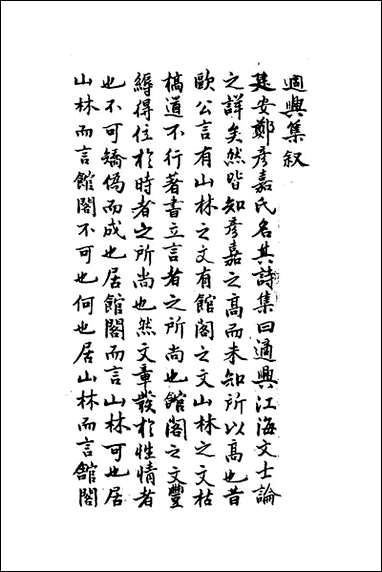 適興集叙
建安鄭彦嘉氏名其詩集曰適興江海文士論
之詳矣然皆知彦嘉之高而未知所以高也昔
歐公言有山林之文有館閣之文山林之文枯
槁道不行著書立言者之所尚也館閣之文豐
縟得位於時者之所尚也然文章發於性情者
也不可矯偽而成也居館閣而言山林可也居
山林而言館閣不可也何也居山林而言館閣